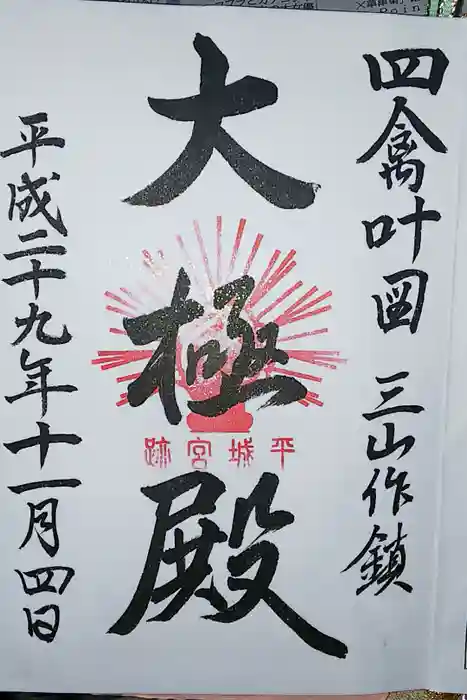 四禽叶図 三山作鎮
大極殿
平城宮跡
平成二十九年十一月四日